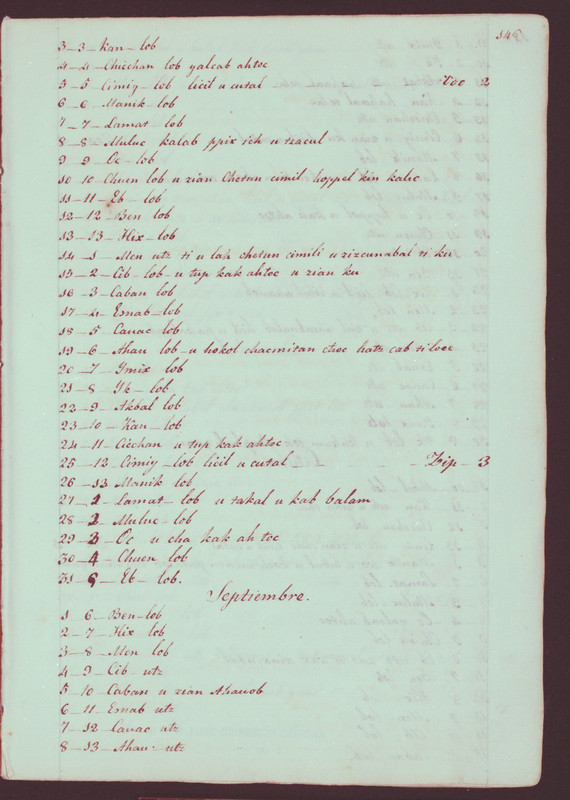 148
3_3_Kan_lob
4_4_Chicchan lob yalcab ahtoc
5_5_Cimiy_lob licil u cutal Uoo 2
6_6_Manik_lob
7_7_Lamat_lob
8_8_Muluc kalab ppix ich u tzacul
9_9_Oc_lob
10_10_Chuen lob u zian Chetun cimil hoppel kin kalic
11_11_Eb_lob
12_12_Ben lob
13_13_Hix_lob
14_1_Men utz ti u lak chetun cimili u zizcunabal ti ku
15_2_Cib_lob_u tup kak ahtoc u zian ku
16_3_Caban lob
17_4_Esnab_lob
18_5_Cauac lob
19_6_Ahau lob_u hokol chacmitan choc hatz cab ti looc
20_7_Ymix lob
21_8_Yk_lob
22_9_Akbal lob
23_10_Kan_lob
24_11_Cicchan u tup kak ahtoc
25_12_Cimiy_lob licil u cutal _ _ _ Zip_3
26_13 Manik lob
27_1_Lamat_lob u takal u kab balam
28_2_Muluc_lob
29_3_Oc u cha kak ah toc
30_4_Chuen lob
31_5_Eb_lob.
Septiembre.
1_6_Ben_lob
2_7_Hix lob
3_8_Men lob
4_9_Cib_utz
5_10_Caban u zian Ahauob
6_11_Esnab utz
7_12_Cauac utz
8_13_Ahau_utz